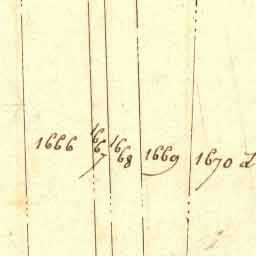 1666
1667
1668
1669
1670 d